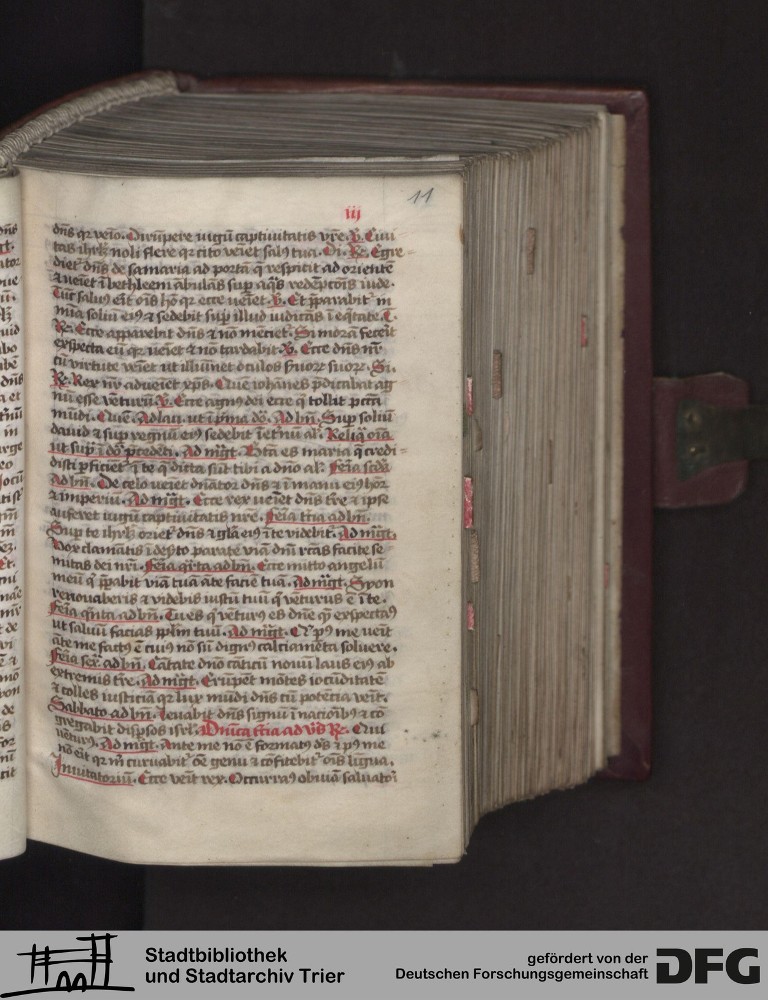 iij 11
dn̄s qr veīo. Dirūpere iugū captiuitatis vr̄e. V. Ciui
tas ihrl̄m noli flere qr cito veīet salus tua. Di. R. Egre
diet᷑ dn̄s de samaria ad portā q̄ respicit ad oriētē
⁊ veīet ī bethleem ābulās sup̄ aq̄s redēpcōis iude.
Tūc saluꝰ erit oīs hō qr ecce veīet. V. Et p̄parabit᷑ in
mīa soliū eiꝰ ⁊ sedebit sup̄ illud iudicās ī eq̄tate. T.
R. Ecce apparebit dn̄s ⁊ nō mēciet᷑. Si morā fecerit
expecta eū qr veīet ⁊ nō tardabit. V. Ecce dn̄s nr̄
cū virtute veīet ut illūinet oculos suoꝝ suoꝝ. Si.
R. Rex nr̄ adueīet xp̄s. Quē ioħanes p̄dicabat ag
nū esse vēturū. V. Ecce agnꝰ dei ecce q̇ tollit pctā
mūdi. Quē. Ad lau. ut ī p̄ma dō. Ad bn̄. Sup̄ soliū
dauid ⁊ sup̄ regnū eiꝰ sedebit ī et᷑nū al᷑. Reliq̄ oīa
ut sup̄ ī dō p̄cedēti. Ad mḡt. Bt̄a es maria q̄ credi=
disti p̄ficiet᷑ ī te q̄ dicta sūt tibi a dn̄o al᷑. Feīa scd̄a
Ad bn̄. De celo veīet dn̄ator dn̄s ⁊ ī manu eiꝰ hōr
⁊ imperiū. Ad mḡt. Ecce rex veīet dn̄s tr̄e ⁊ ip̄se
auferet iugū captiuitatis nr̄e. Feīa tc̄ia ad bn̄.
Sup̄ te ihrl̄m oriet᷑ dn̄s ⁊ gl̄a eiꝰ ī te videbit᷑. Ad mḡt.
Vox clamātis ī deẜto parate viā dn̄i rc̄as facite se
mitas dei nr̄i. Feīa q̄rta ad bn̄. Ecce mitto angelū
meū q̇ p̄parabit viā tuā āte faciē tuā. Ad mḡt. Syon
renouaberis ⁊ videbis iustū tuū q̇ vēturus ē ī te.
Feīa q̄nta ad bn̄. Tu es q̇ vēturꝰ es dn̄e quē expectaꝰ
ut saluū facias pplm̄ tuū. Ad mḡt. Qui pꝰ me veīt
āte me factꝰ ē cuiꝰ nō sū dignꝰ calciamēta soluere.
Feīa sexta ad bn̄. Cātate dn̄o cāticū nouū laus eiꝰ ab
extremis tr̄e. Ad mḡt. Erūpēt mōtes iocūditatē
⁊ colles iusticiā qr lux mūdi dn̄s cū potēcia veīt.
Sabbato ad bn̄. Leuabit dn̄s signū ī nacioībꝰ ⁊ cō
gregabit disp̄sos isrl̄. Dn̄ica tc̄ia ad vs̄ R. Qui
vēturꝰ. Ad mḡt. Ante me nō ē formatꝰ d̄s ⁊ pꝰ me
nō erit qr m̄ curuabit᷑ oē genu ⁊ cōfitebit᷑ oīs ligua.
Inuitatoriū. Ecce veīt rex. Occurraꝰ obuiā saluatori
Stadtbibliothek
und Stadtarchiv Trier
gefördert von der
Deutschen Forschungsgemeinschaft
DFG